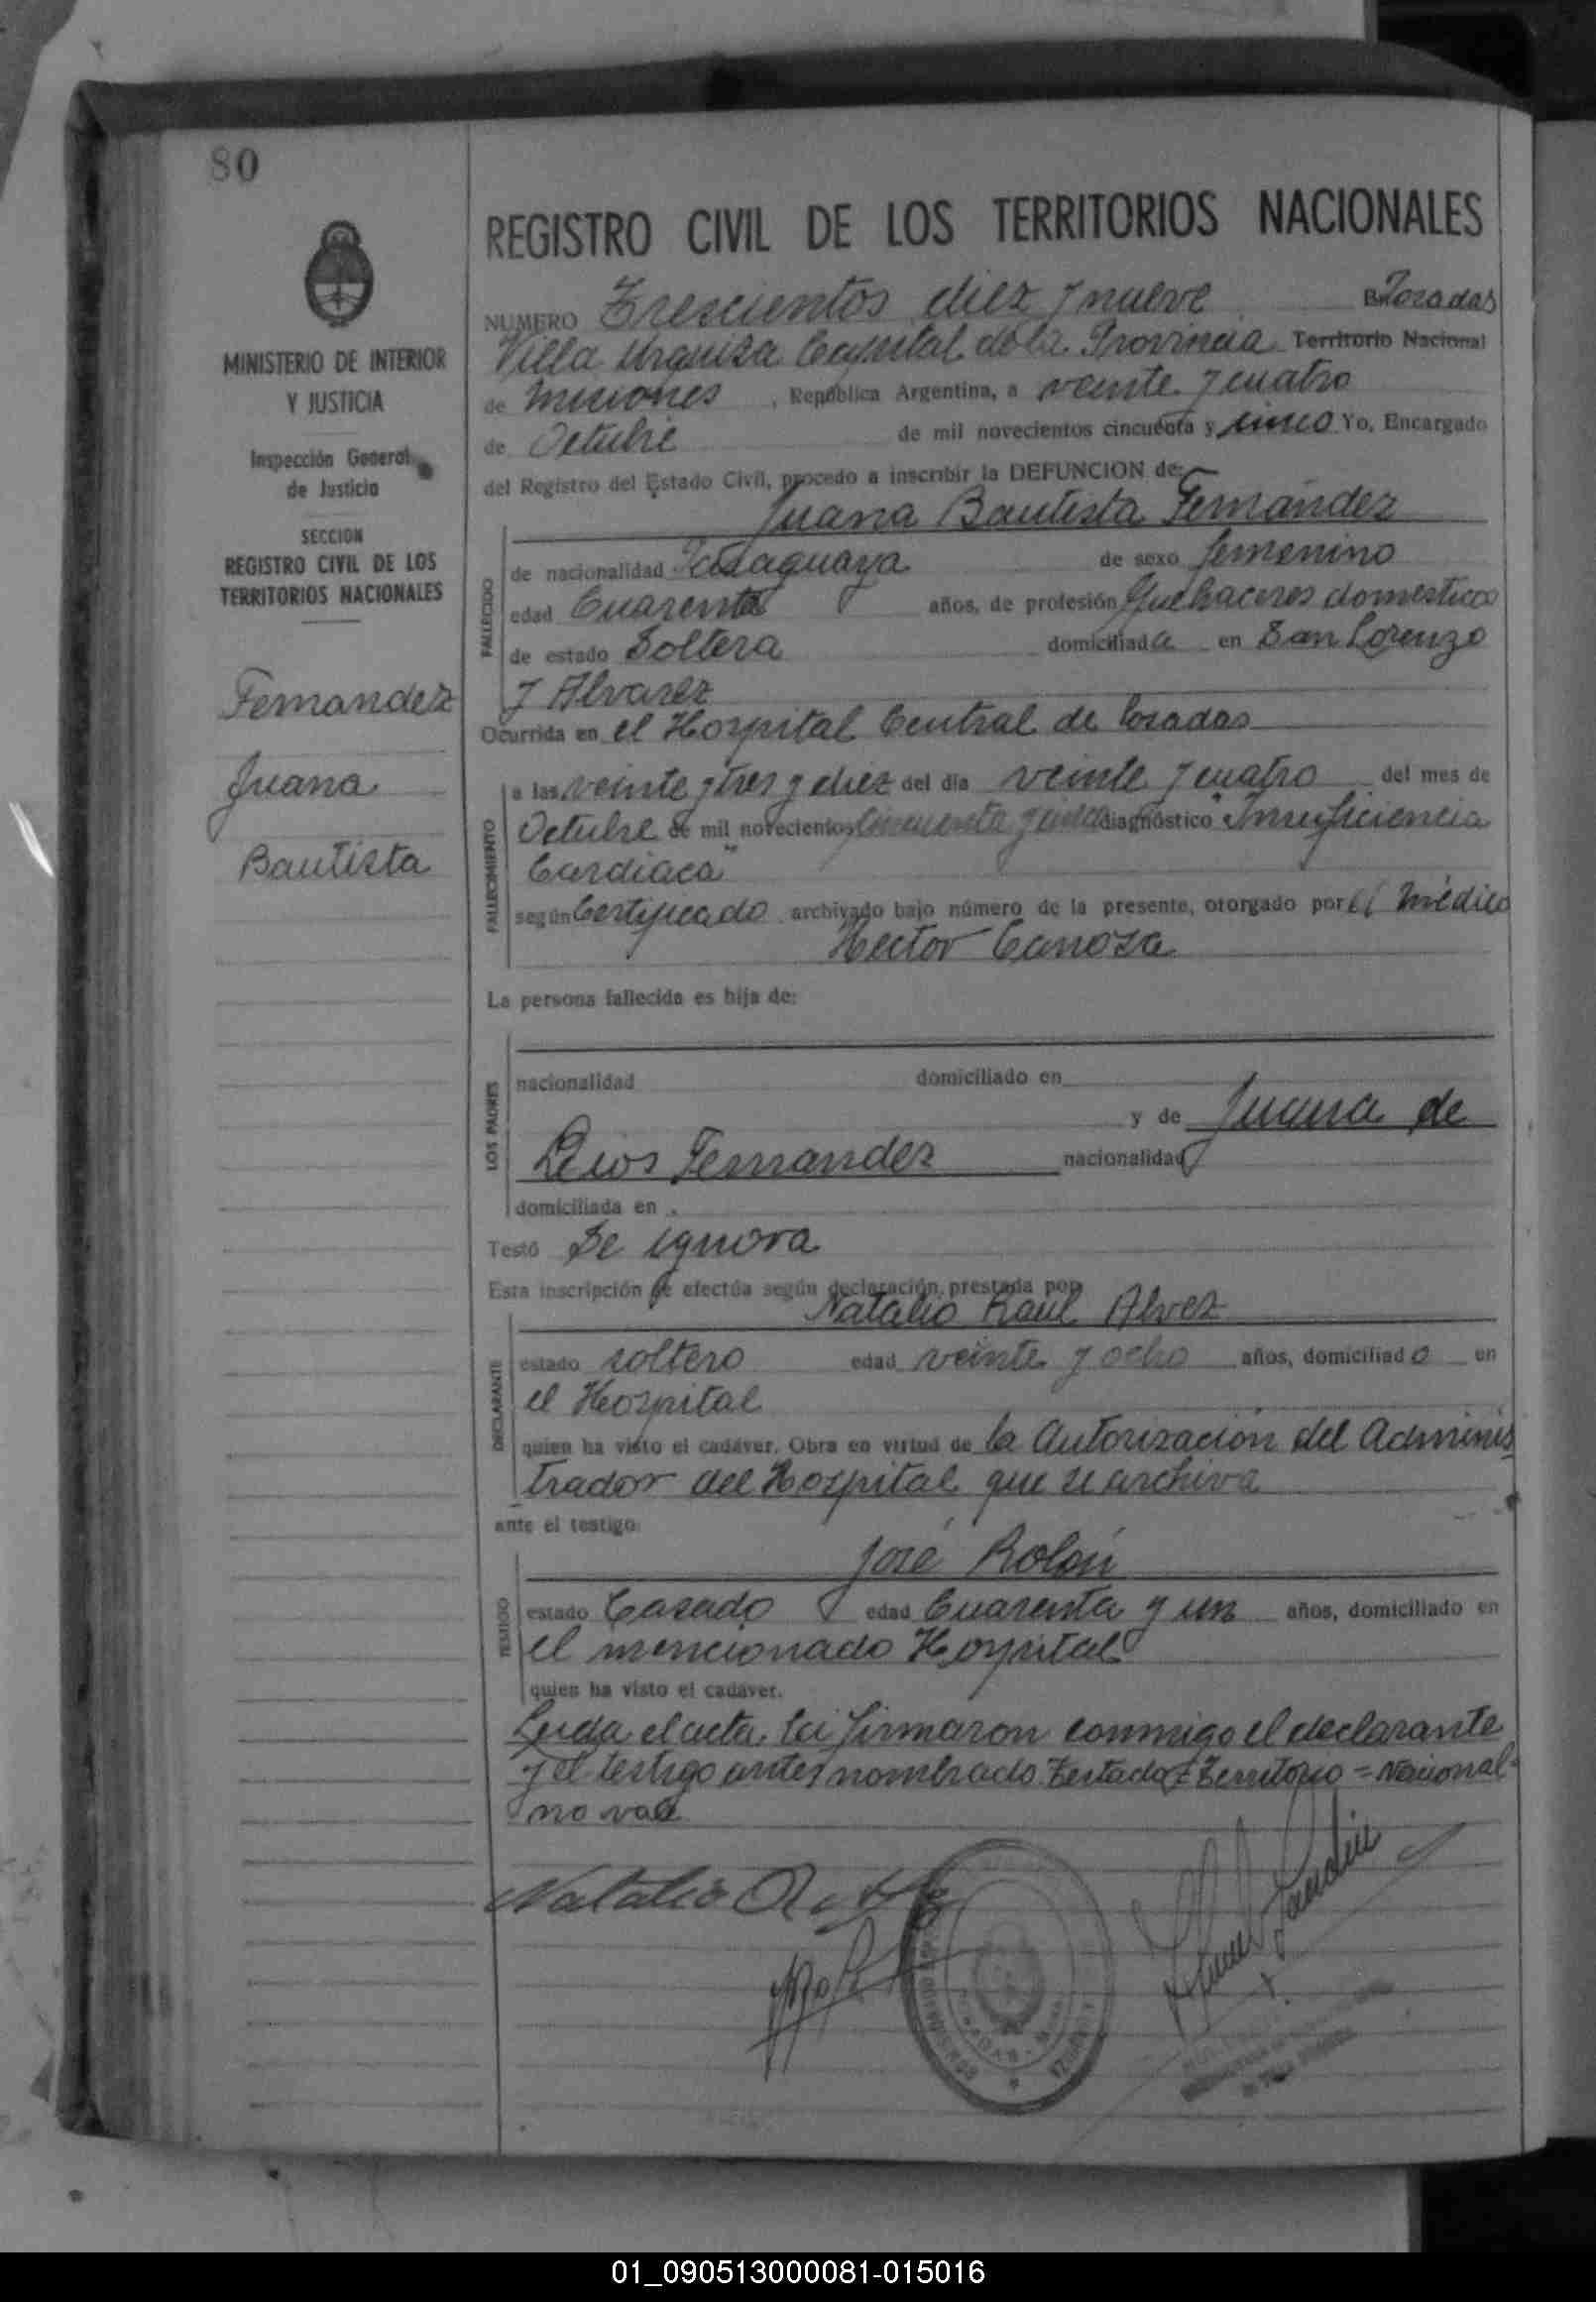 80
MINISTERIO DE INTERIOR
Y JUSTICIA
Inspección General
de Justicia
SECCION
REGISTRO CIVIL DE LOS
TERRITORIOS NACIONALES
Fernandez
Juana
Bautista
REGISTRO CIVIL DE LOS TERRITORIOS NACIONALES
NUMERO Trescientos diez y nueve En Posadas
Villa Urquiza Capital de la Provincia Territorio Nacional
de Misiones, República Argentina, a veinte y cuatro
de Octubre de mil novecientos cincuenta y cinco Yo, Encargado
del Registro del Estado Civil, procedo a inscribir la DEFUNCION de:
Juana Bautista Fernández
FALLECIDO
de nacionalidad Paraguaya de sexo femenino
edad Cuarenta años, de profesión Quehaceres domesticos
de estado Soltera domiciliada en San Lorenzo
y Alvarez
Ocurrida en el Hospital Central de Posadas
FALLECIMIENTO
a las veinte y tres y diez del día veinte y cuatro del mes de
Octubre de mil novecientos cincuenta y cinco diagnóstico "Insuficiencia
Cardiaca"
según Certificado archivado bajo número de la presente, otorgado por el Médico
Hector Canosa
La persona fallecida es hija de:
LOS PADRES
nacionalidad domiciliado en
y de Juana de
Dios Fernandez nacionalidad
domiciliada en
Testó Se ignora
Esta inscripción se efectúa según declaración prestada por
Natalio Raul Alvez
DECLARANTE
estado soltero edad veinte y ocho años, domiciliado en
el Hospital
quien ha visto el cadáver. Obra en virtud de la Autorización del Adminis
trador del Hospital que se archiva
ante el testigo
José Rolón
TESTIGO
estado Casado edad Cuarenta y un años, domiciliado en
el mencionado Hospital
quien ha visto el cadáver.
Leida el acta, la firmaron conmigo el declarante
y el testigo antes nombrado. Testado = Territorio = Nacional =
no vale
Natalio R.
01_090513000081-015016